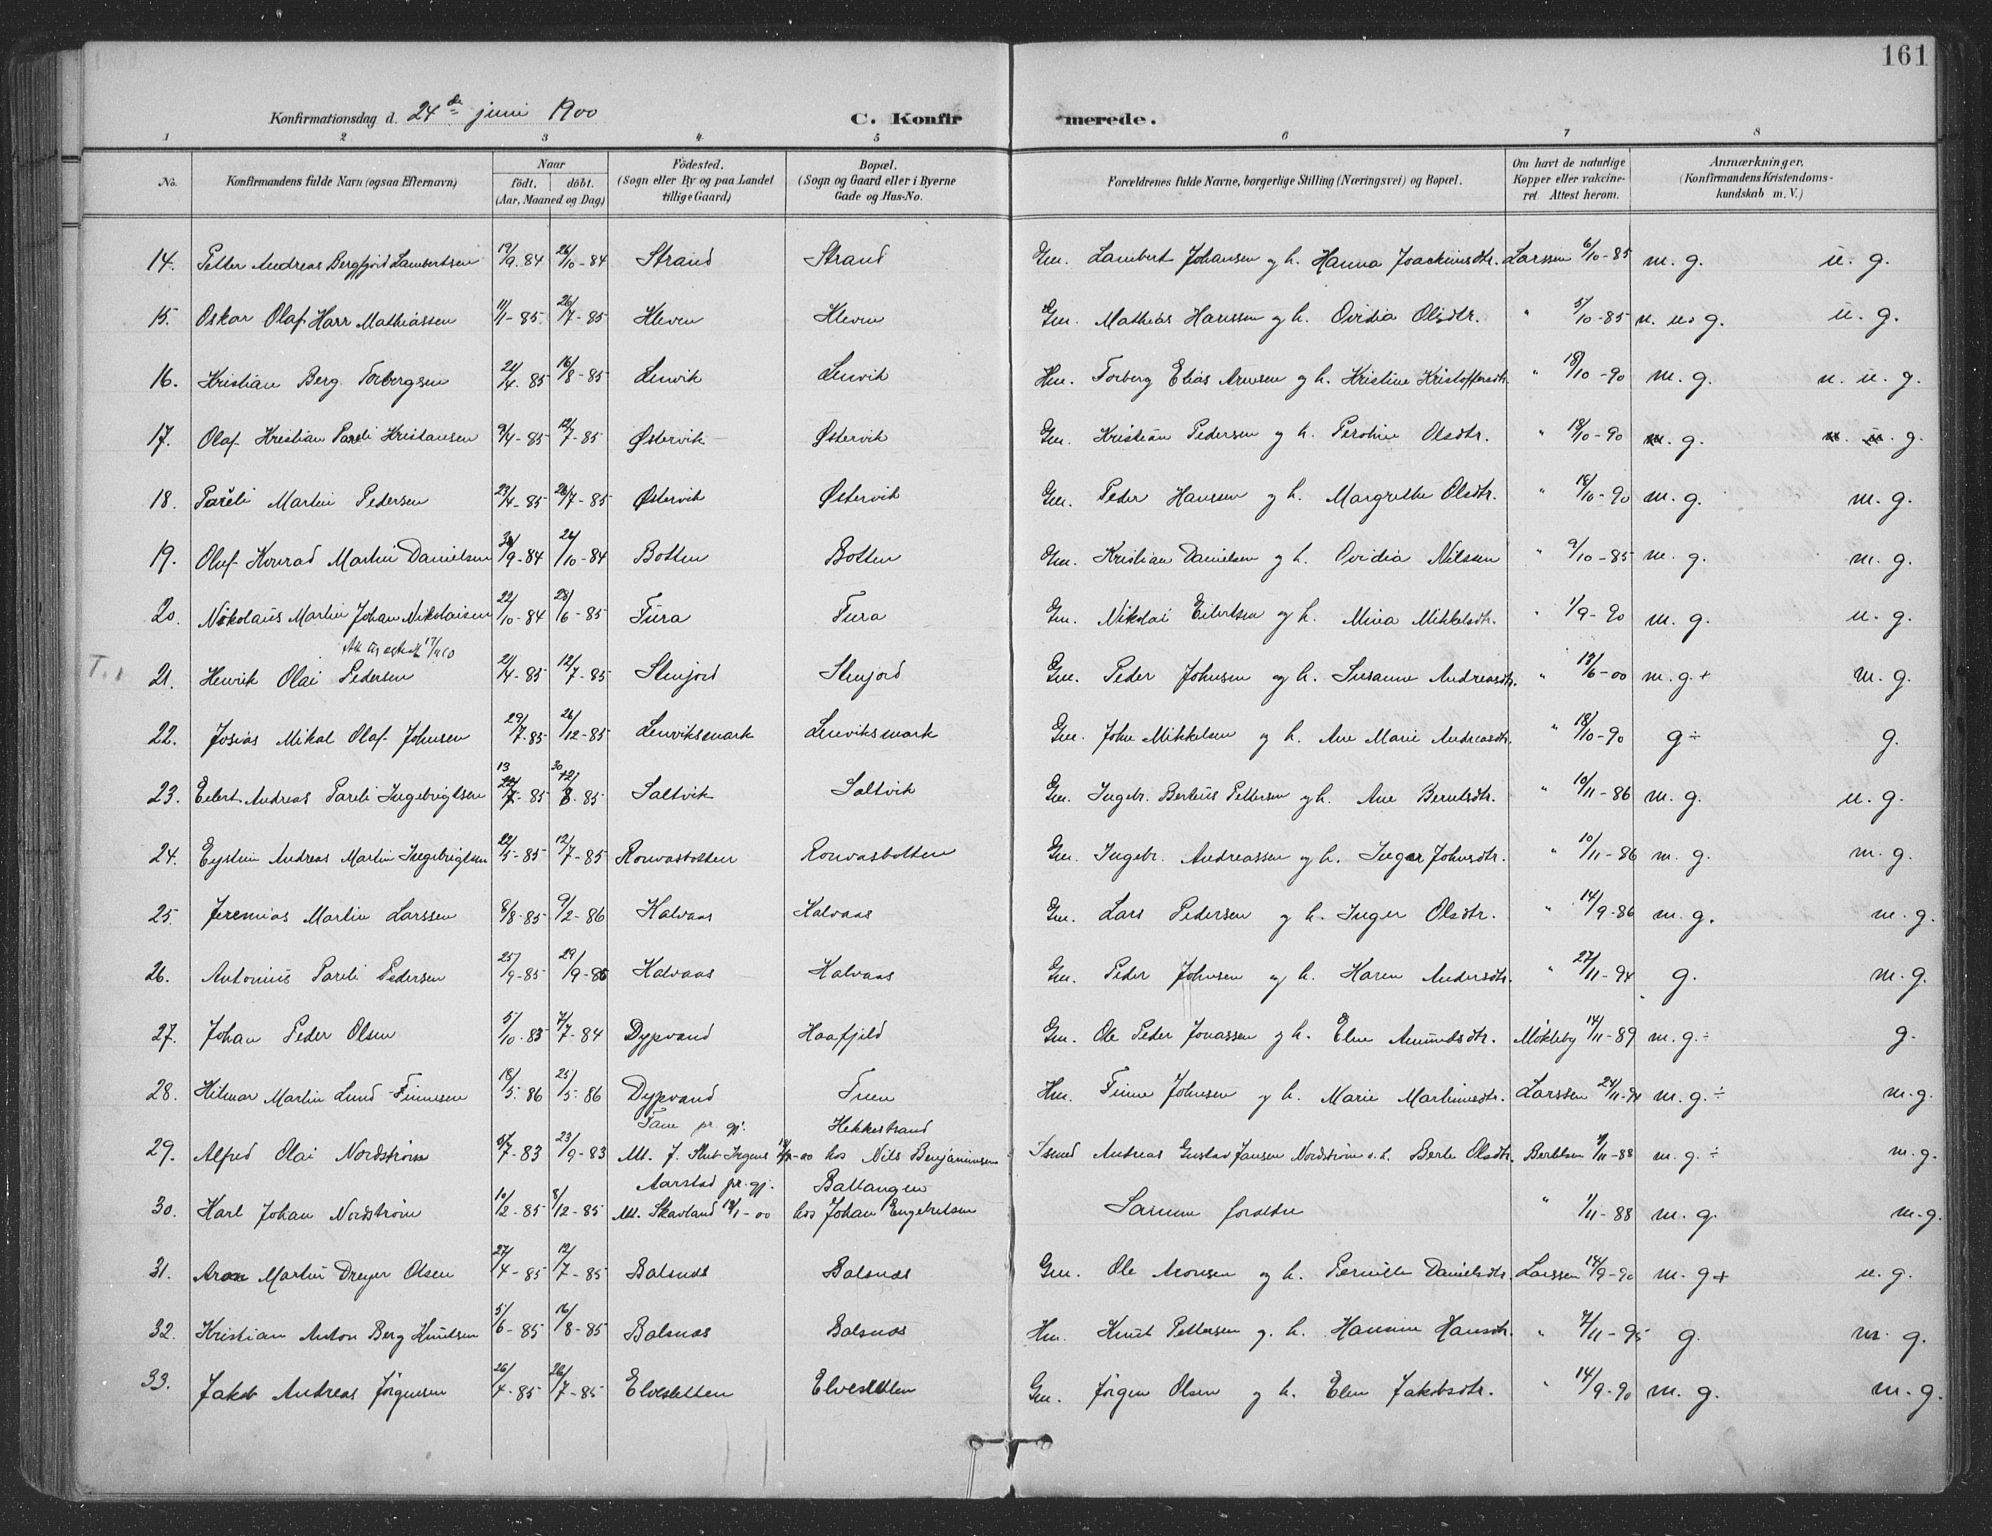 161
Konfirmationsdag d. 24de juni 1900
C. Konfirmerede.
1 2 3 4 5 6 7 8
No. Konfirmandens fulde Navn (ogsaa Efternavn) Naar født, døbt. (Aar, Maaned og Dag) Fødested. (Sogn eller By og paa Landet tillige Gaard) Bopæl. (Sogn og Gaard eller i Byerne Gade og Hus-No. Forældrenes fulde Navne, borgerlige Stilling (Næringsvei) og Bopæl. Om havt de naturlige Kopper eller vakcineret Attest herom. Anmærkninger. (Konfirmandens Kristendomskundskab m. V.)
14. Petter Andreas Bergfjord Lambertsen 19/9.84 26/10-84 Strand Strand Gm. Lambert Johansen og h. Hanna Joachimsdtr. Larssen 6/10-85 m. g. u. g.
15. Oskar Olaf Harr Mathiassen 11/1-85 26/7-85 Kleven Kleven Gm. Mathias Hanssen og h. Ovidia Olsdtr. " 5/10-85 u. g.
16. Kristian Berg Torbergsen 21/4.85 16/8-85 Lenvik Lenvik Hm. Torberg Elias Arnesen og h. Kristine Kristoffersdtr. " 18/10-90 m. g. u. u. g.
17. Olaf Kristian Pareli Kristiansen 9/4-85 12/7-85 Østervik Østervik Gm. Kristian Pedersen og h. Peroline Olsdtr. " 18/10-90 g. g.
18. Pareli Martin Pedersen 23/4-85 26/7-85 Østervik Østervik Gm. Peder Hansen og h. Margrethe Olsdtr. " 18/10-90 m. g. m. g.
19. Oluf Konrad Martin Danielsen 30/9-84 26/10-84 Botten Botten Gm. Kristian Danielsen og h. Ovidia Nilssen " 9/10-85 m. g. m. g.
20. Nikolaus Martin Johan Nikolaisen 22/10-84 28/6-85 Fura Fura Gm. Nikolai Eilertsen og h. Mina Mikkelsdtr. " 1/9-90 m. g. u. g.
21. Henrik Olai Pedersen 21/4-85 12/7-85 Stenjord Stenjord Gm. Peder Johnsen og h. Susanne Andreasdtr. " 13/6-00 m. g. + m. g.
22. Josias Mikal Olaf Johnsen 29/7.85 26/12-85 Lenviksmark Lenviksmark Gm. John Mikkelsen og h. Ane Marie Andreasdtr. " 18/10-90 g ÷ g.
23. Eilert Andreas Pareli Ingebrigtsen 13 85 30 85 Saltvik Saltvik Gm. Ingebr. Berteus Pettersen og h. Ane Berntsdtr. " 10/11-86 m. g. u. g.
24. Eystein Andreas Martin Ingebrigtsen 22/5-85 12/7-85 Ronvasbotten Ronvasbotten Gm. Ingebr. Andreassen og h. Inger Johnsdtr. " 10/11-86 m. g. m. g.
25. Jeremias Martin Larssen 8/8-85 9/2-86 Kalvaas Kalvaas Gm. Lars Pedersen og h. Inger Olsdtr. " 14/9-86 m. g. m. g.
26. Antonius Pareli Pedersen 25/9-85 29/9-86 Kalvaas Kalvaas Gm. Peder Johnsen og h. Karen Andersdtr. " 27/11-94 g. m. g.
27. Johan Peder Olsen 5/10.83 7/7-84 Dypvand Haafjeld Gm. Ole Peder Jonassen og h. Elen Amundsdtr. Mökleby 14/11-89 m. g. ÷ g.
28. Hilmar Martin Lund Finnesen 18/5.86 25/5-86 Dypvand Hm. Finne Johnsen og h. Marie Martinusdtr. Larssen 24/11-94 m. g. ÷ m. g.
29. Alfred Olai Nordstrøm 5/7-83 23/9-83 Hekkestrand hos Nils Benjaminsen Andreas Gustav Jansen Nordstrøm o. h. Berte Olsdtr. Bertelsen 1/11-88 m. g. ÷ m. g.
30. Karl Johan Nordstrøm 10/2-85 8/12-85 Aarstad pr. gj. Att. Skavland 18/1-00 Ballangen hos Johan Engebretsen Samme forældre " 1/11-88 m. g. m. g.
31. Aron Martin Dreyer Olsen 27/4-85 12/7-85 Balsnes Balsnes Gm. Ole Aronsen og h. Pernille Danielsdtr. Larssen 14/9-90 m. g + u. g.
32. Kristian Anton Berg Knutsen 5/6-85 16/8-85 Balsnes Balsnes Hm. Knut Pettersen og h. Hansine Hansdtr. " 7/11-95 g. m. g.
33. Jakob Andreas Jørgensen 26/4-85 26/7-85 Elvesletten Elvesletten Gm. Jørgen Olsen og h. Elen Jakobsdtr. " 14/9-90 m. g. m. g.